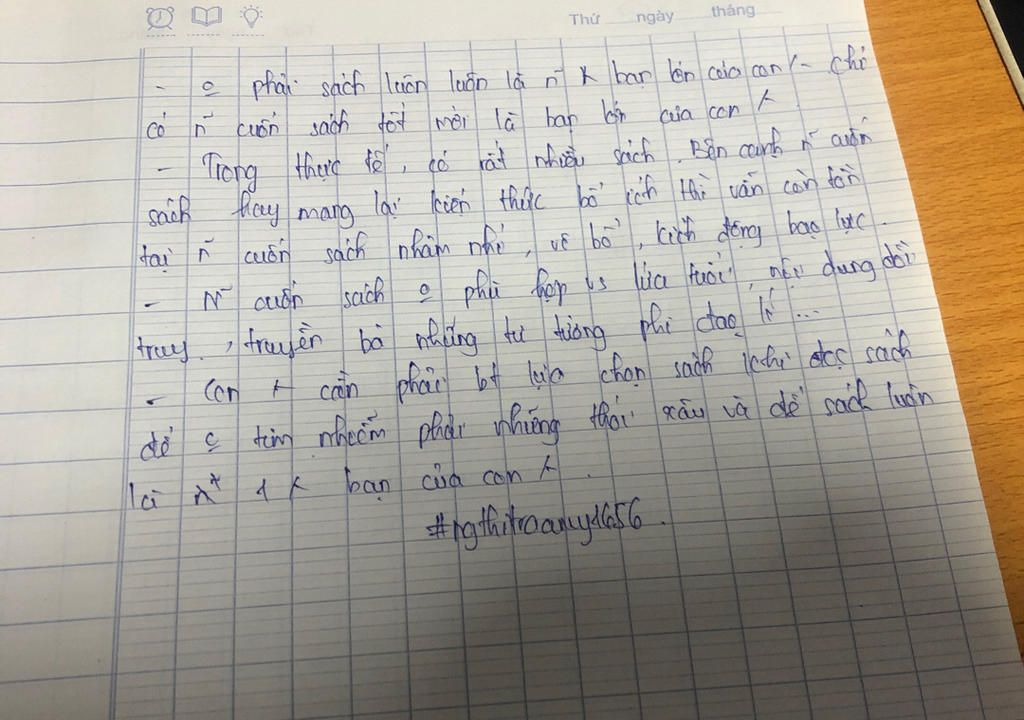 Thứ ngày tháng
- o phải sách luôn luôn là ñ k bạn lớn của con k - chỉ
có ñ cuốn sách tốt mới là bạn lớn của con k
- Trong thực tế, có rất nhiều sách. Bên cạnh ñ cuốn
sách hay mang lại kiến thức bổ ích thì vẫn còn tồn
tại ñ cuốn sách nhảm nhí, vô bổ, kích động bạo lực.
- Ñ cuốn sách o phù hợp vs lứa tuổi, nội dung đồi
truy, truyền bá những tư tưởng phi đạo lí...
- Con k cần phải bt lựa chọn sách khi đọc sách
để o tim nhiễm phải những thói xấu và để sách luôn
là 1 k bạn của con k.